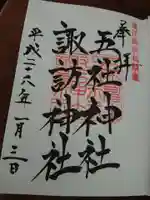 奉拝
五社神社
諏訪神社
平成二六年一月三日